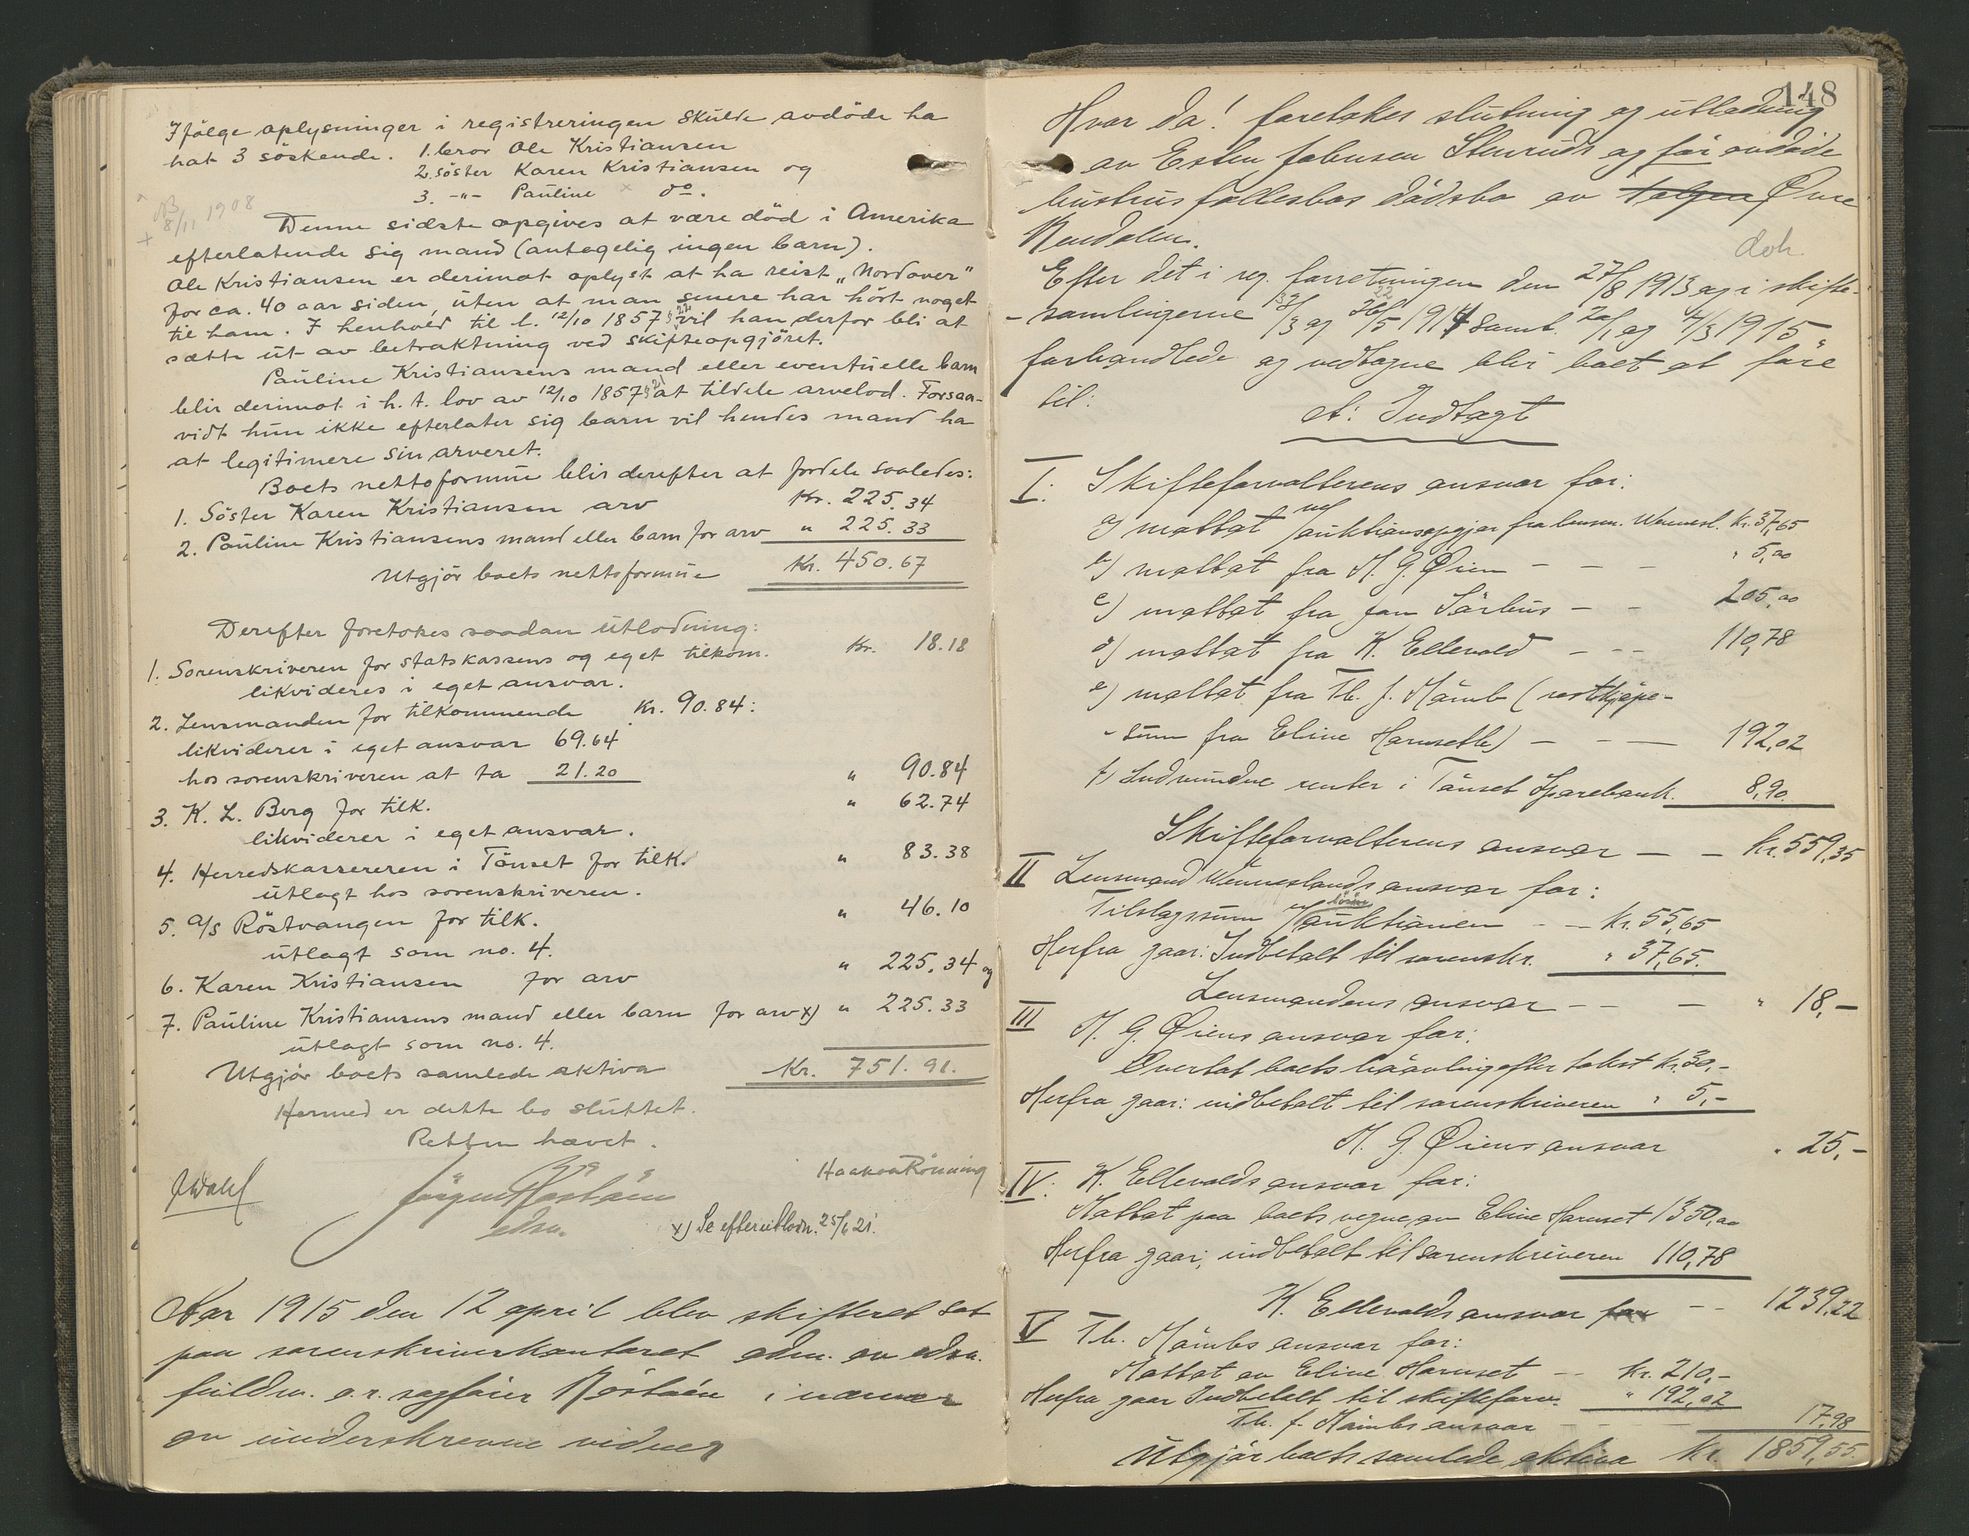 Ifølge oplysninger i registreringen skulde avdøde ha
hat 3 søskende. 1. bror Ole Kristiansen
2. søster Karen Kristiansen og
3. -"- Pauline do.
8/11 1908
Denne sidste opgives at være død i Amerika
efterlatende sig mand (antagelig ingen barn).
Ole Kristiansen er derimot oplyst at ha reist "Nordover"
for ca. 40 aar siden, uten at man senere har hørt noget
til ham. I henhold til l. 12/10 1857 vil han derfor bli at
sætte ut av betraktning ved skifteopgjøret.
Pauline Kristiansens mand eller eventuelle barn
blir derimot i h. t. lov av 12/10 1857 at tildele arvelod. Forsaa-
vidt hun ikke efterlater sig barn vil hendes mand ha
at legitimere sin arveret.
Boets nettoformue blir derefter at fordele saaledes:
1. Søster Karen Kristiansen arv Kr. 225.34
2. Pauline Kristiansens mand eller barn for arv " 225.33
Utgjør boets nettoformue Kr. 450.67
Derefter foretokes saadan utlodning:
1. Sorenskriveren for statskassens og eget tilkom. Kr. 18.18
likvideres i eget ansvar.
2. Lensmanden for tilkommende Kr. 90.84:
likviderer i eget ansvar 69.64
hos sorenskriveren at ta 21.20 " 90.84
3. K. L. Berg for tilk. " 62.74
likviderer i eget ansvar.
4. Herredskassereren i Tönset for tilk. " 83.38
utlagt hos sorenskriveren.
5. a/s Röstvangen for tilk. " 46.10
utlagt som no. 4.
6. Karen Kristiansen for arv " 225.34 og
7. Pauline Kristiansens mand eller barn for arv x) " 225.33
utlagt som no. 4.
Utgjør boets samlede aktiva Kr. 751.91.
Hermed er dette bo sluttet.
Retten hævet.
Haakon Rönning
Jørgen Røstøen
edsv.
x) Se efterutlodn. 25/6 21.
Aar 1915 den 12 april blev skifteret sat
paa sorenskriverkontoret adm. av edsv.
fuldm. o.r. sagfører Røstøen i nærvær
av underskrevne vidner
148
Hvor da! foretokes slutning og utlodning
av Esten Johnsen Stenruds og før avdøde
hustrus fællesbos dødsbo av Øvre
Rendalen.
doh.
Efter det i reg. forretningen den 27/8 1913 og i skifte-
samlingerne 13/3 og 26/5 1914 samt 20/1 og 4/3 1915
forhandlede og vedtagne blir boet at føre
til:
A: Indtægt
I: Skifteforvalterens ansvar for:
a) mottat ved auktionsopgjør fra lensm. Wennesl. kr. 37,65
b) mottat fra H. G. Øien - - - " 5,00
c) mottat fra Jon Sörhus - - 205,00
d) mottat fra K. Ellevold - - - 110,78
e) mottat fra Th. J. Haarnb (restkjøpe-
sum fra Eline Harnset) - - - 192,02
f) Indvundne renter i Tönset Sparebank. 8,90.
Skifteforvalterens ansvar - - kr. 559,35
II Lensmand Wenneslands ansvar for:
Tilslagssum v/ løsøre auktionen - - kr. 55,65
Herfra gaar: Indbetalt til sorenskr. " 37,65.
Lensmandens ansvar - - - " 18,-
III H. G. Øiens ansvar for:
Overtat boets avling efter takst kr. 30,-
Herfra gaar: indbetalt til sorenskriveren " 5,-
H. G. Øiens ansvar " 25,-
IV: K. Ellevolds ansvar for:
Mottat paa boets vegne av Eline Harnset 1350,00
Herfra gaar; indbetalt til sorenskriveren 110,78
K. Ellevolds ansvar for - - 1239,22
V Th. Haarnbs ansvar for:
Mottat av Eline Harnset - - kr. 210,-
Herfra gaar Indbetalt til skifteforv. " 192,02
Th. J. Haarnbs ansvar - - - 17,98
Utgjør boets samlede aktiva kr. 1859,55.